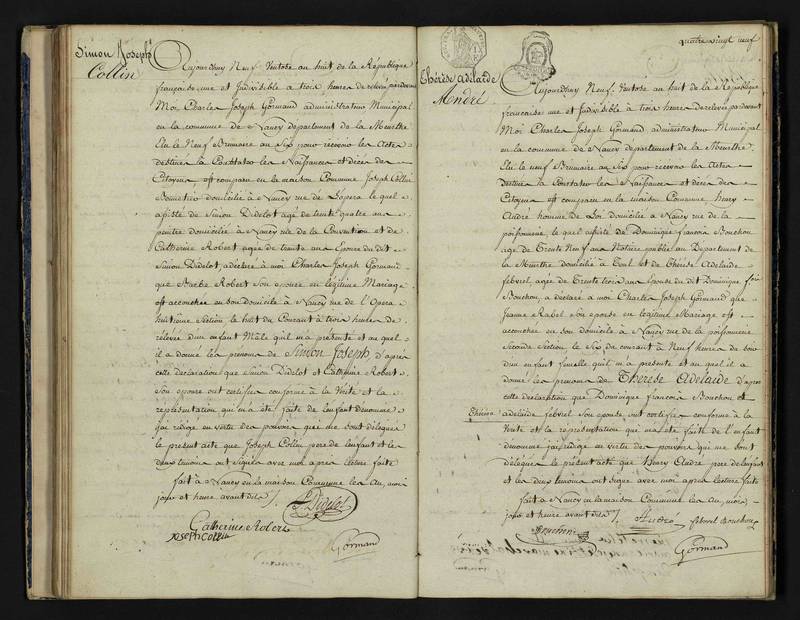 Simon Joseph
Collin
Aujourdhuy Neuf Ventose an huit de la République
françoise une et Indivisible a trois heures de relevée pardevant
Moi Charles Joseph Gormand administrateur Municipal
en la commune de Nancy departement de la Meurthe
Elu le Neuf Brumaire an Six pour recevoir les Actes
destinés à Constater les Naissances et décès des
Citoyens est comparu en la maison Commune Joseph Collin
domicilié à Nancy rue de L'opera le quel
assisté de Simon Didelot agé de trente quatre ans
peintre domicilié à Nancy rue de la Convention et de
Catherine Robert agée de trente ans Epouse du dit
Simon Didelot, a déclaré à moi Charles Joseph Gormand
que Barbe Robert son epouse en légitime Mariage
est accouchée en son domicile à Nancy rue de l'Opera
huitième Section, le huit du Courant à trois heures de
relevée d'un enfant Mâle qu'il m'a présenté et au quel
il a donné les prenoms de Simon Joseph, d'après
cette déclaration que Simon Didelot et Catherine Robert
son epouse ont certifiés conforme à la Verité et la
représentation qui m'a été faite de l'enfant dénommé
j'ai rédigé en vertu des pouvoirs qui me sont délégués
le présent acte que Joseph Collin pere de l'enfant et les
deux temoins ont signés avec moi après lecture faite
fait à Nancy en la maison Commune les an, mois
jour et heure avant dits /.
S. Didelot
Catherine Robert
Joseph Collin
Gormand
quatre vingt neuf
Thérèse adelaide
André
Aujourdhuy Neuf Ventose an huit de la République
françoise une et Indivisible à trois heures de relevée pardevant
Moi Charles Joseph Gormand administrateur Municipal
en la commune de Nancy departement de la Meurthe
Elu le neuf Brumaire an Six pour recevoir les Actes
destinés à Constater les Naissances et décès des
Citoyens est comparu en la maison Commune, Henry
André homme de Loi domicilié à Nancy rue de la
poissonnerie, le quel assisté de Dominique françois Bouchon
agé de Trente Neuf ans Notaire public au Departement de
la Meurthe domicilié à Toul et de Thérèse Adelaide
febvrel, agée de Trente trois ans Epouse du dit Dominique fois
Bouchon, a déclaré a moi Charles Joseph Gormand que
Jeanne Rabel son épouse en légitime Mariage est
accouchée en son domicile à Nancy rue de la poissonnerie
Seconde Section le Six du courant à Neuf heures de soir
d'un enfant femelle qu'il m'a presenté et au quel il a
donné les prenoms de Thérèse Adelaide d'après
cette déclaration que Dominique françois Bouchon et
Thérèse
adelaide febvrel Son epouse ont certifiés conforme à la
Verité et la représentation qui m'a été faite de l'enfant
dénommé j'ai rédigé en vertu des pouvoirs qui me sont
délégués le présent acte que Henry André pere de l'enfant
et les deux temoins ont signé avec moi après lecture faite
fait à Nancy en la maison Commune les an, mois
jour et heure avant dits /.
H André
febvrel Bouchon
Bouchon
Gormand